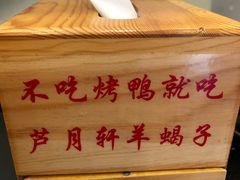 不吃烤鸭就吃
芦月轩羊蝎子